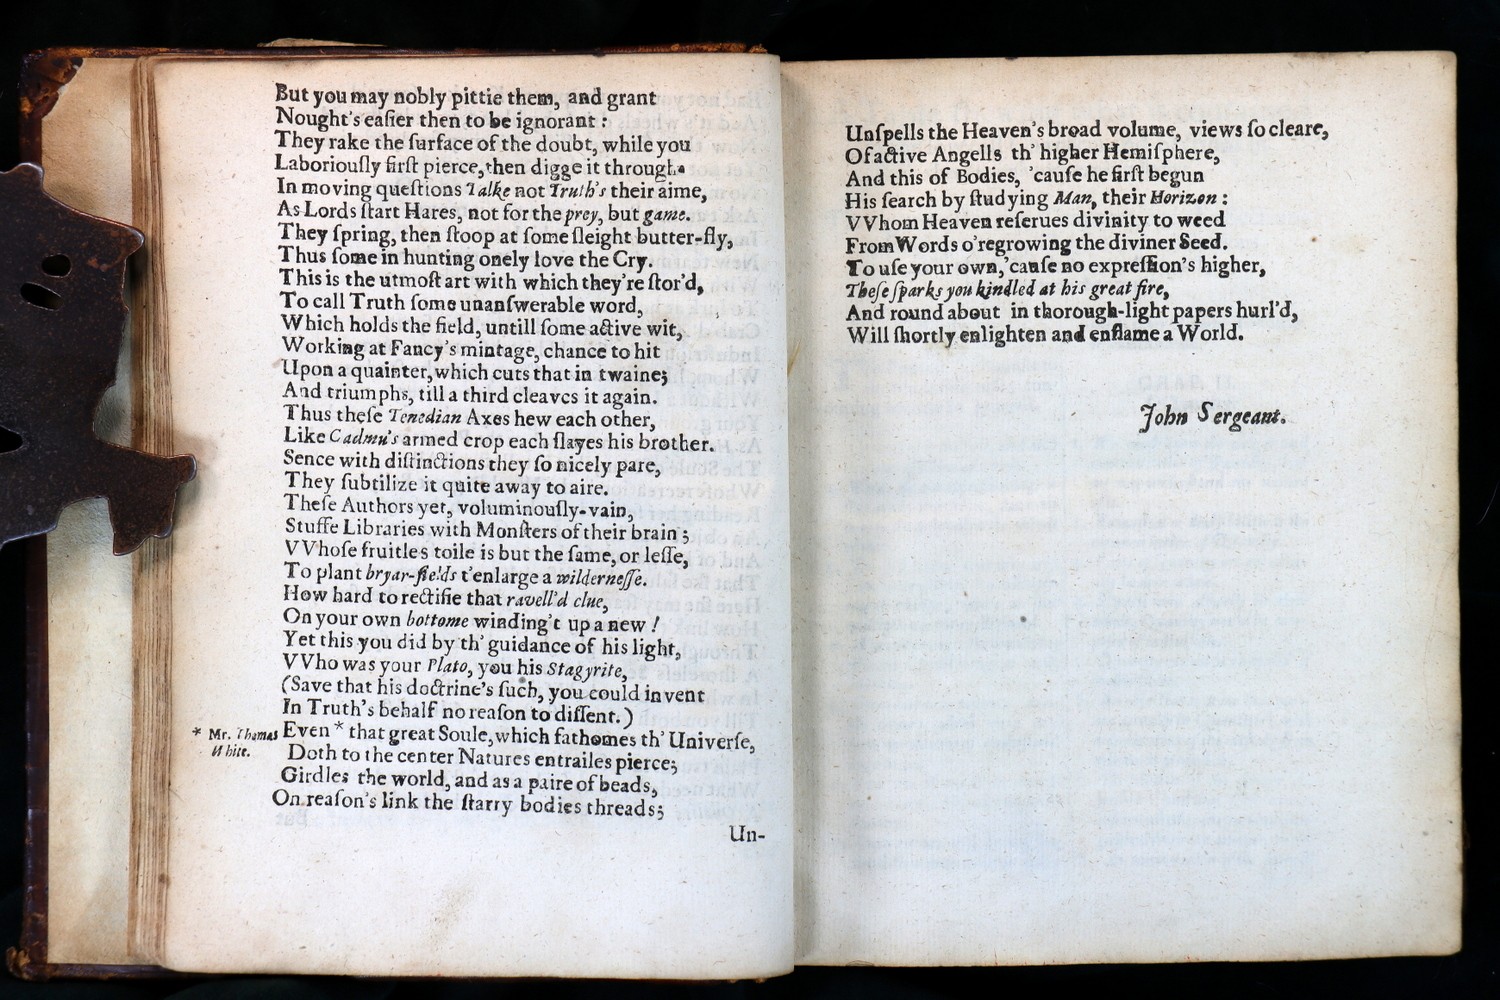 But you may nobly pittie them, and grant
Nought's easier then to be ignorant :
They rake the ſurface of the doubt, while you
Laboriouſly firſt pierce, then digge it through.
In moving queſtions Talke not Truth's their aime,
As Lords ſtart Hares, not for the prey, but game.
They ſpring, then ſtoop at ſome ſleight butter-fly,
Thus ſome in hunting onely love the Cry.
This is the utmoſt art with which they're ſtor'd,
To call Truth ſome unanſwerable word,
Which holds the field, untill ſome active wit,
Working at Fancy's mintage, chance to hit
Upon a quainter, which cuts that in twaine;
And triumphs, till a third cleaves it again.
Thus theſe Tenedian Axes hew each other,
Like Cadmu's armed crop each ſlayes his brother.
Sence with diſtinctions they ſo nicely pare,
They ſubtilize it quite away to aire.
Theſe Authors yet, voluminouſly-vain,
Stuffe Libraries with Monſters of their brain ;
VVhoſe fruitles toile is but the ſame, or leſſe,
To plant bryar-fields t'enlarge a wilderneſſe.
How hard to rectifie that ravell'd clue,
On your own bottome winding't up a new !
Yet this you did by th' guidance of his light,
VVho was your Plato, you his Stagyrite,
(Save that his doctrine's ſuch, you could invent
In Truth's behalf no reaſon to diſſent.)
* Mr. Thomas White.
Even * that great Soule, which fathomes th' Univerſe,
Doth to the center Natures entrailes pierce;
Girdles the world, and as a paire of beads,
On reaſon's link the ſtarry bodies threads;
Un-
Unſpells the Heaven's broad volume, views ſo cleare,
Of active Angells th' higher Hemiſphere,
And this of Bodies, 'cauſe he firſt begun
His ſearch by ſtudying Man, their Horizon :
VVhom Heaven reſerues divinity to weed
From Words o'regrowing the diviner Seed.
To uſe your own, 'cauſe no expreſſion's higher,
Theſe ſparks you kindled at his great fire,
And round about in thorough-light papers hurl'd,
Will ſhortly enlighten and enflame a World.
John Sergeant.